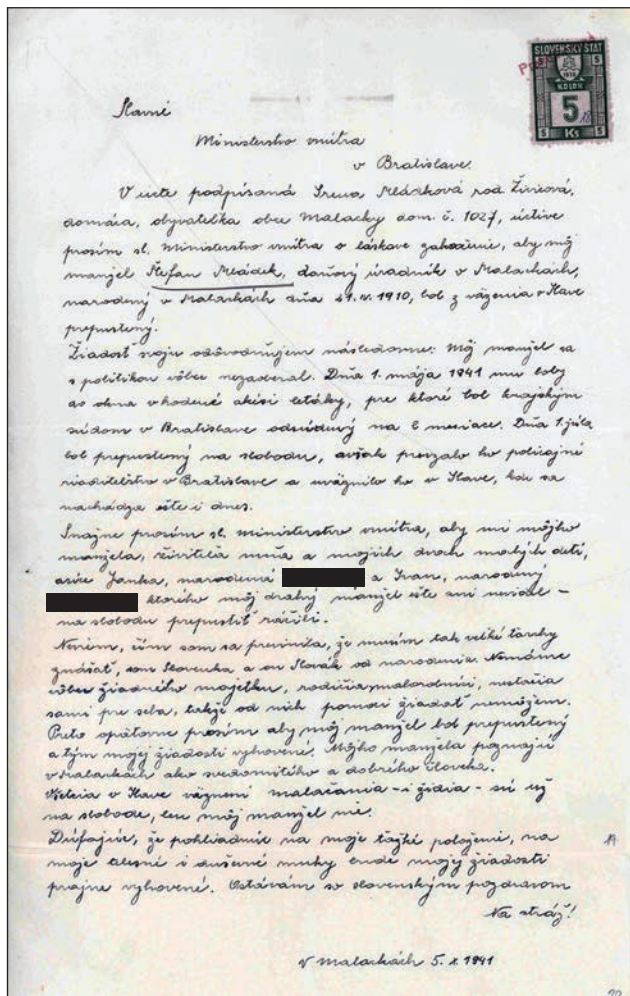 SLOVENSKÝ ŠTÁT
5 5
1939
KOLOK
5
5 Ks 5
Slavné
Ministerstvo vnútra
v Bratislave.
V úcte podpísaná Irena Mládková rod. Živicová,
domáca, obyvateľka obce Malacky dom. č. 1027, úctive
prosím sl. Ministerstvo vnútra o láskavé zakročenie, aby môj
manžel Štefan Mládek, daňový úradník v Malackách,
narodený v Malackách dňa 21. IV. 1910, bol z väzenia v Ilave
prepustený.
Žiadosť svoju odôvodňujem následovne: Môj manžel sa
s politikou vôbec nezaoberal. Dňa 1. mája 1941 mu boly
do okna vhodené akési letáky, pre ktoré bol krajským
súdom v Bratislave odsúdený na 2 mesiace. Dňa 1. júla
bol prepustený na slobodu, avšak prevzalo ho policajné
riaditeľstvo v Bratislave a uväznilo ho v Ilave, kde sa
nachádza ešte i dnes.
Snažne prosím sl. ministerstvo vnútra, aby mi môjho
manžela, živitela mňa a mojich dvoch malých detí,
a síce Janka, narodená a Ivan, narodený
ktorého môj drahý manžel ešte ani nevidel –
na slobodu prepustiť ráčili.
Neviem, čím som sa previnila, že musím tak veľké ťarchy
znášať, som Slovenka a on Slovák od narodenia. Nemáme
vôbec žiadného majetku, rodičia, maloroľníci, nestačia
sami pre seba, takže od nich pomoci žiadať nemôžem.
Preto opätovne prosím aby môj manžel bol prepustený
a tým mojej žiadosti vyhovené. Môjho manžela poznajú
v Malackách ako svedomitého a dobrého človeka.
Všetcia v Ilave väznení malačania – i židia – sú už
na slobode, len môj manžel nie.
Dúfajúc, že pohliadnúc na moje ťažké položenie, na
moje telesné i duševné muky bude mojej žiadosti
prajne vyhovené. Ostávam so slovenským pozdravom
Na stráž!
V Malackách 5. X. 1941